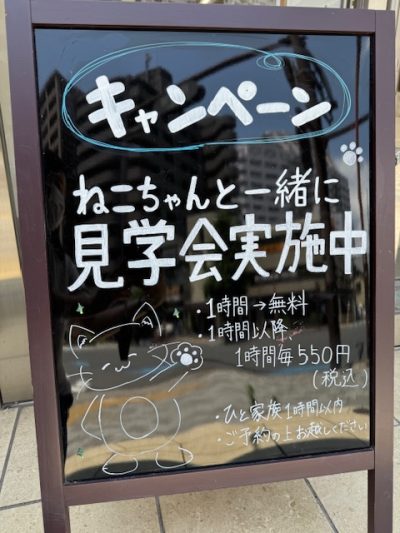 キャンペーン
ねこちゃんと一緒に
見学会実施中
・1時間→無料
・1時間以降
1時間毎550円
(税込)
・ひと家族1時間以内
・ご予約の上お越しください